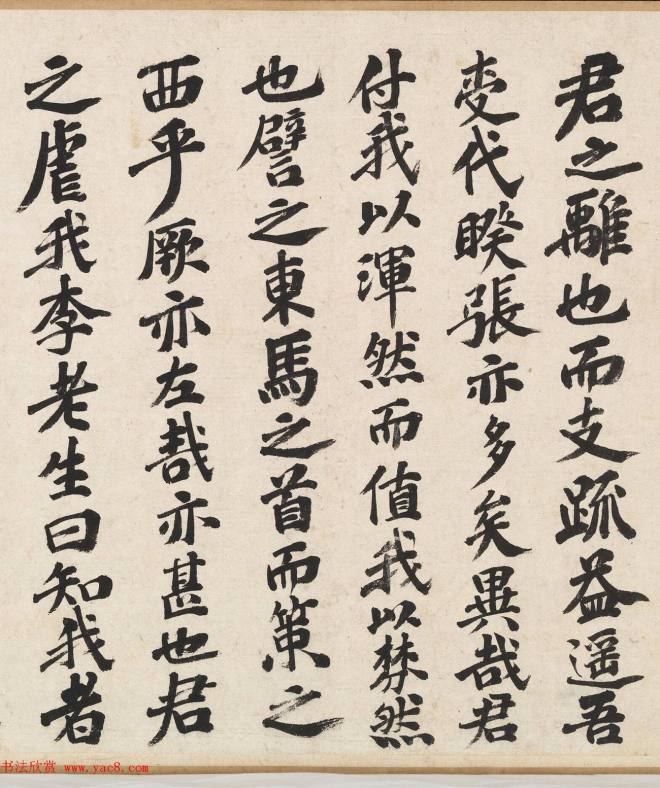 君之離也而支疏益遥吾
变代暌張亦多矣異哉君
付我以渾然而值我以棼然
也譬之東馬之首而策之
西乎厥亦左哉亦甚也君
之虐我李老生曰知我者
书法欣赏 www.yac8.com